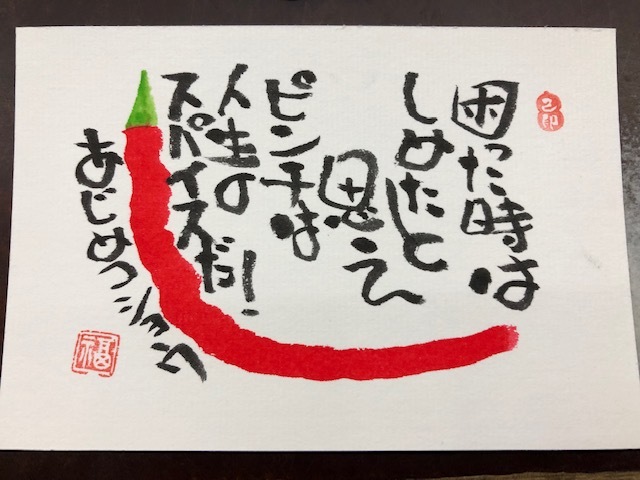 困った時は
しめたと
思え
ピンチは
人生の
スパイスだ!
あじめコショウ
福